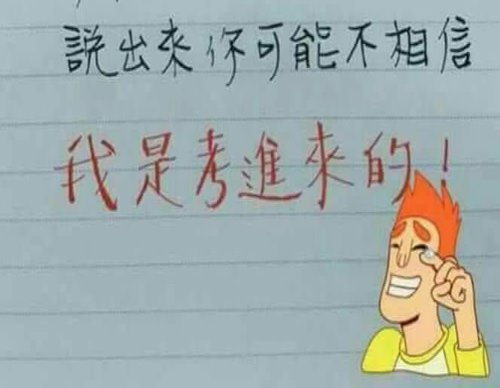 說出來你可能不相信
我是考進來的!